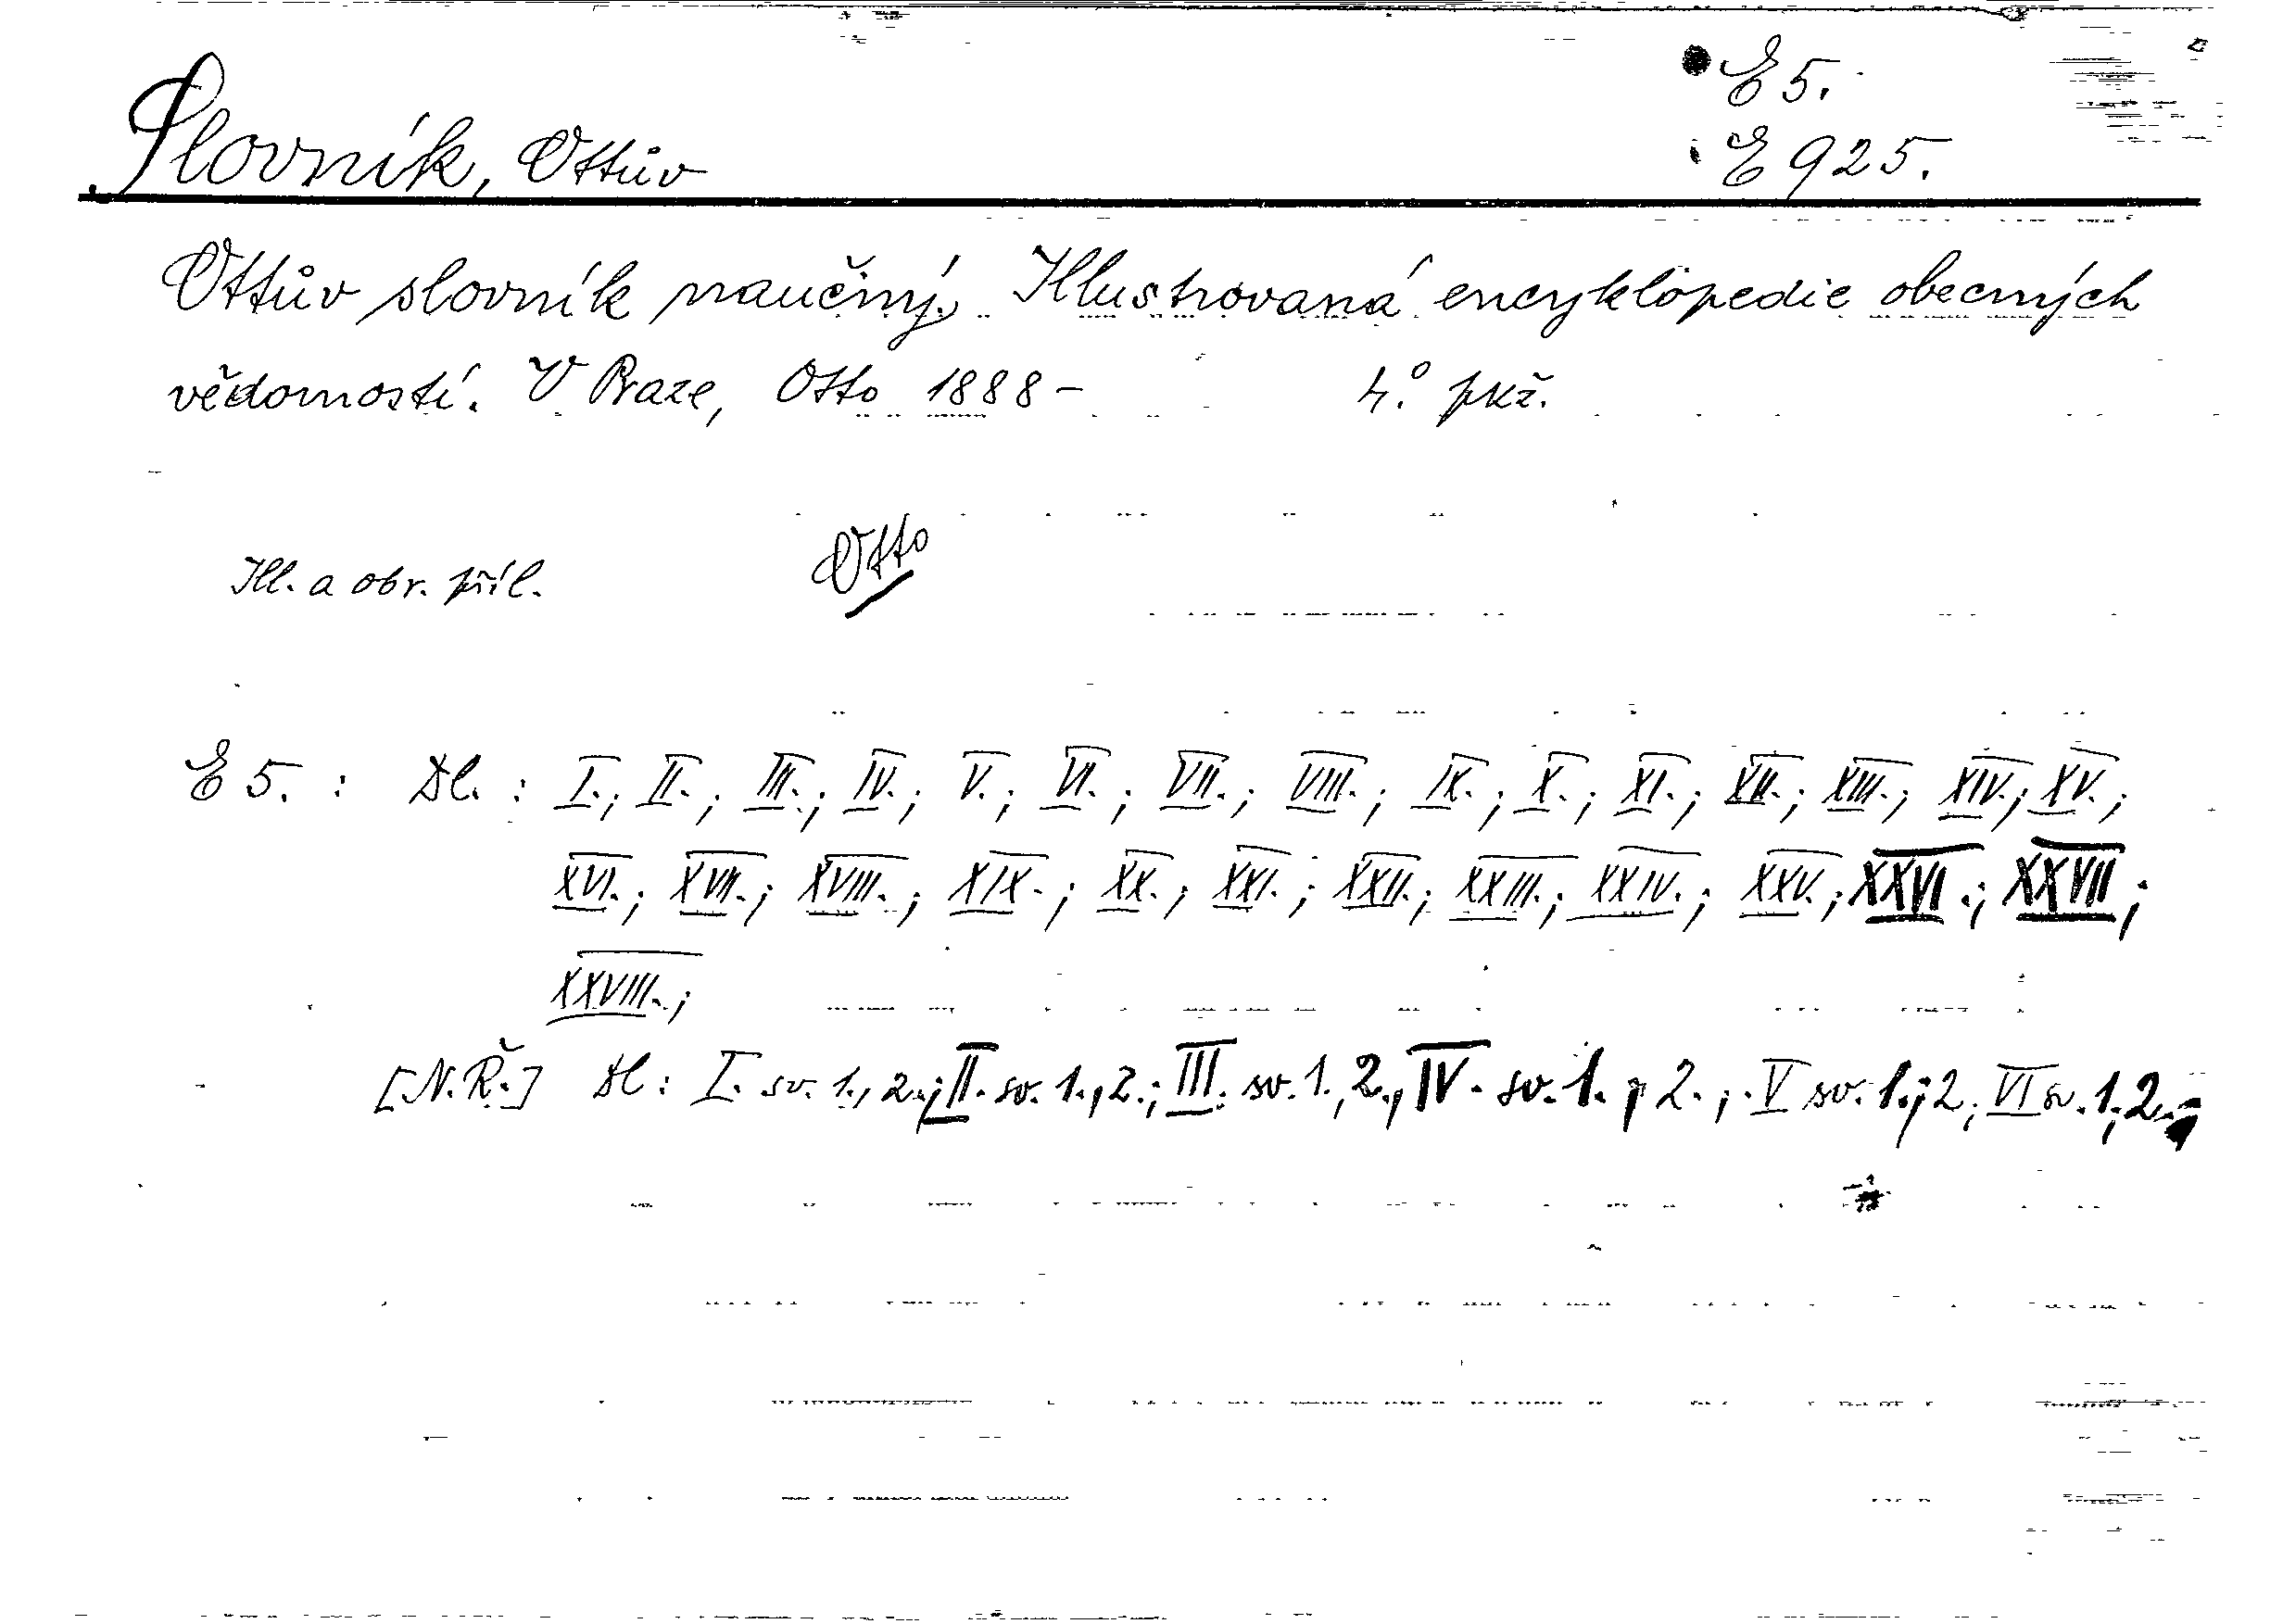 E 5.
Slovník, Ottův
E 925.
Ottův slovník naučný. Illustrovaná encyklopedie obecných
vědomostí. V Praze, Otto 1888- 4.° pkž.
Ill. a obr. příl. Otto
E 5. : Dl. : I.; II.; III.; IV.; V.; VI.; VII.; VIII.; IX.; X.; XI.; XII.; XIII.; XIV.; XV.;
XVI.; XVII.; XVIII.; XIX.; XX.; XXI.; XXII.; XXIII.; XXIV.; XXV.; XXVI.; XXVII;
XXVIII.;
[N.Ř.] Dl: I. sv. 1., 2.; II. sv. 1., 2.; III. sv. 1., 2., IV. sv. 1. , 2. ; V sv. 1.; 2; VI sv. 1; 2.